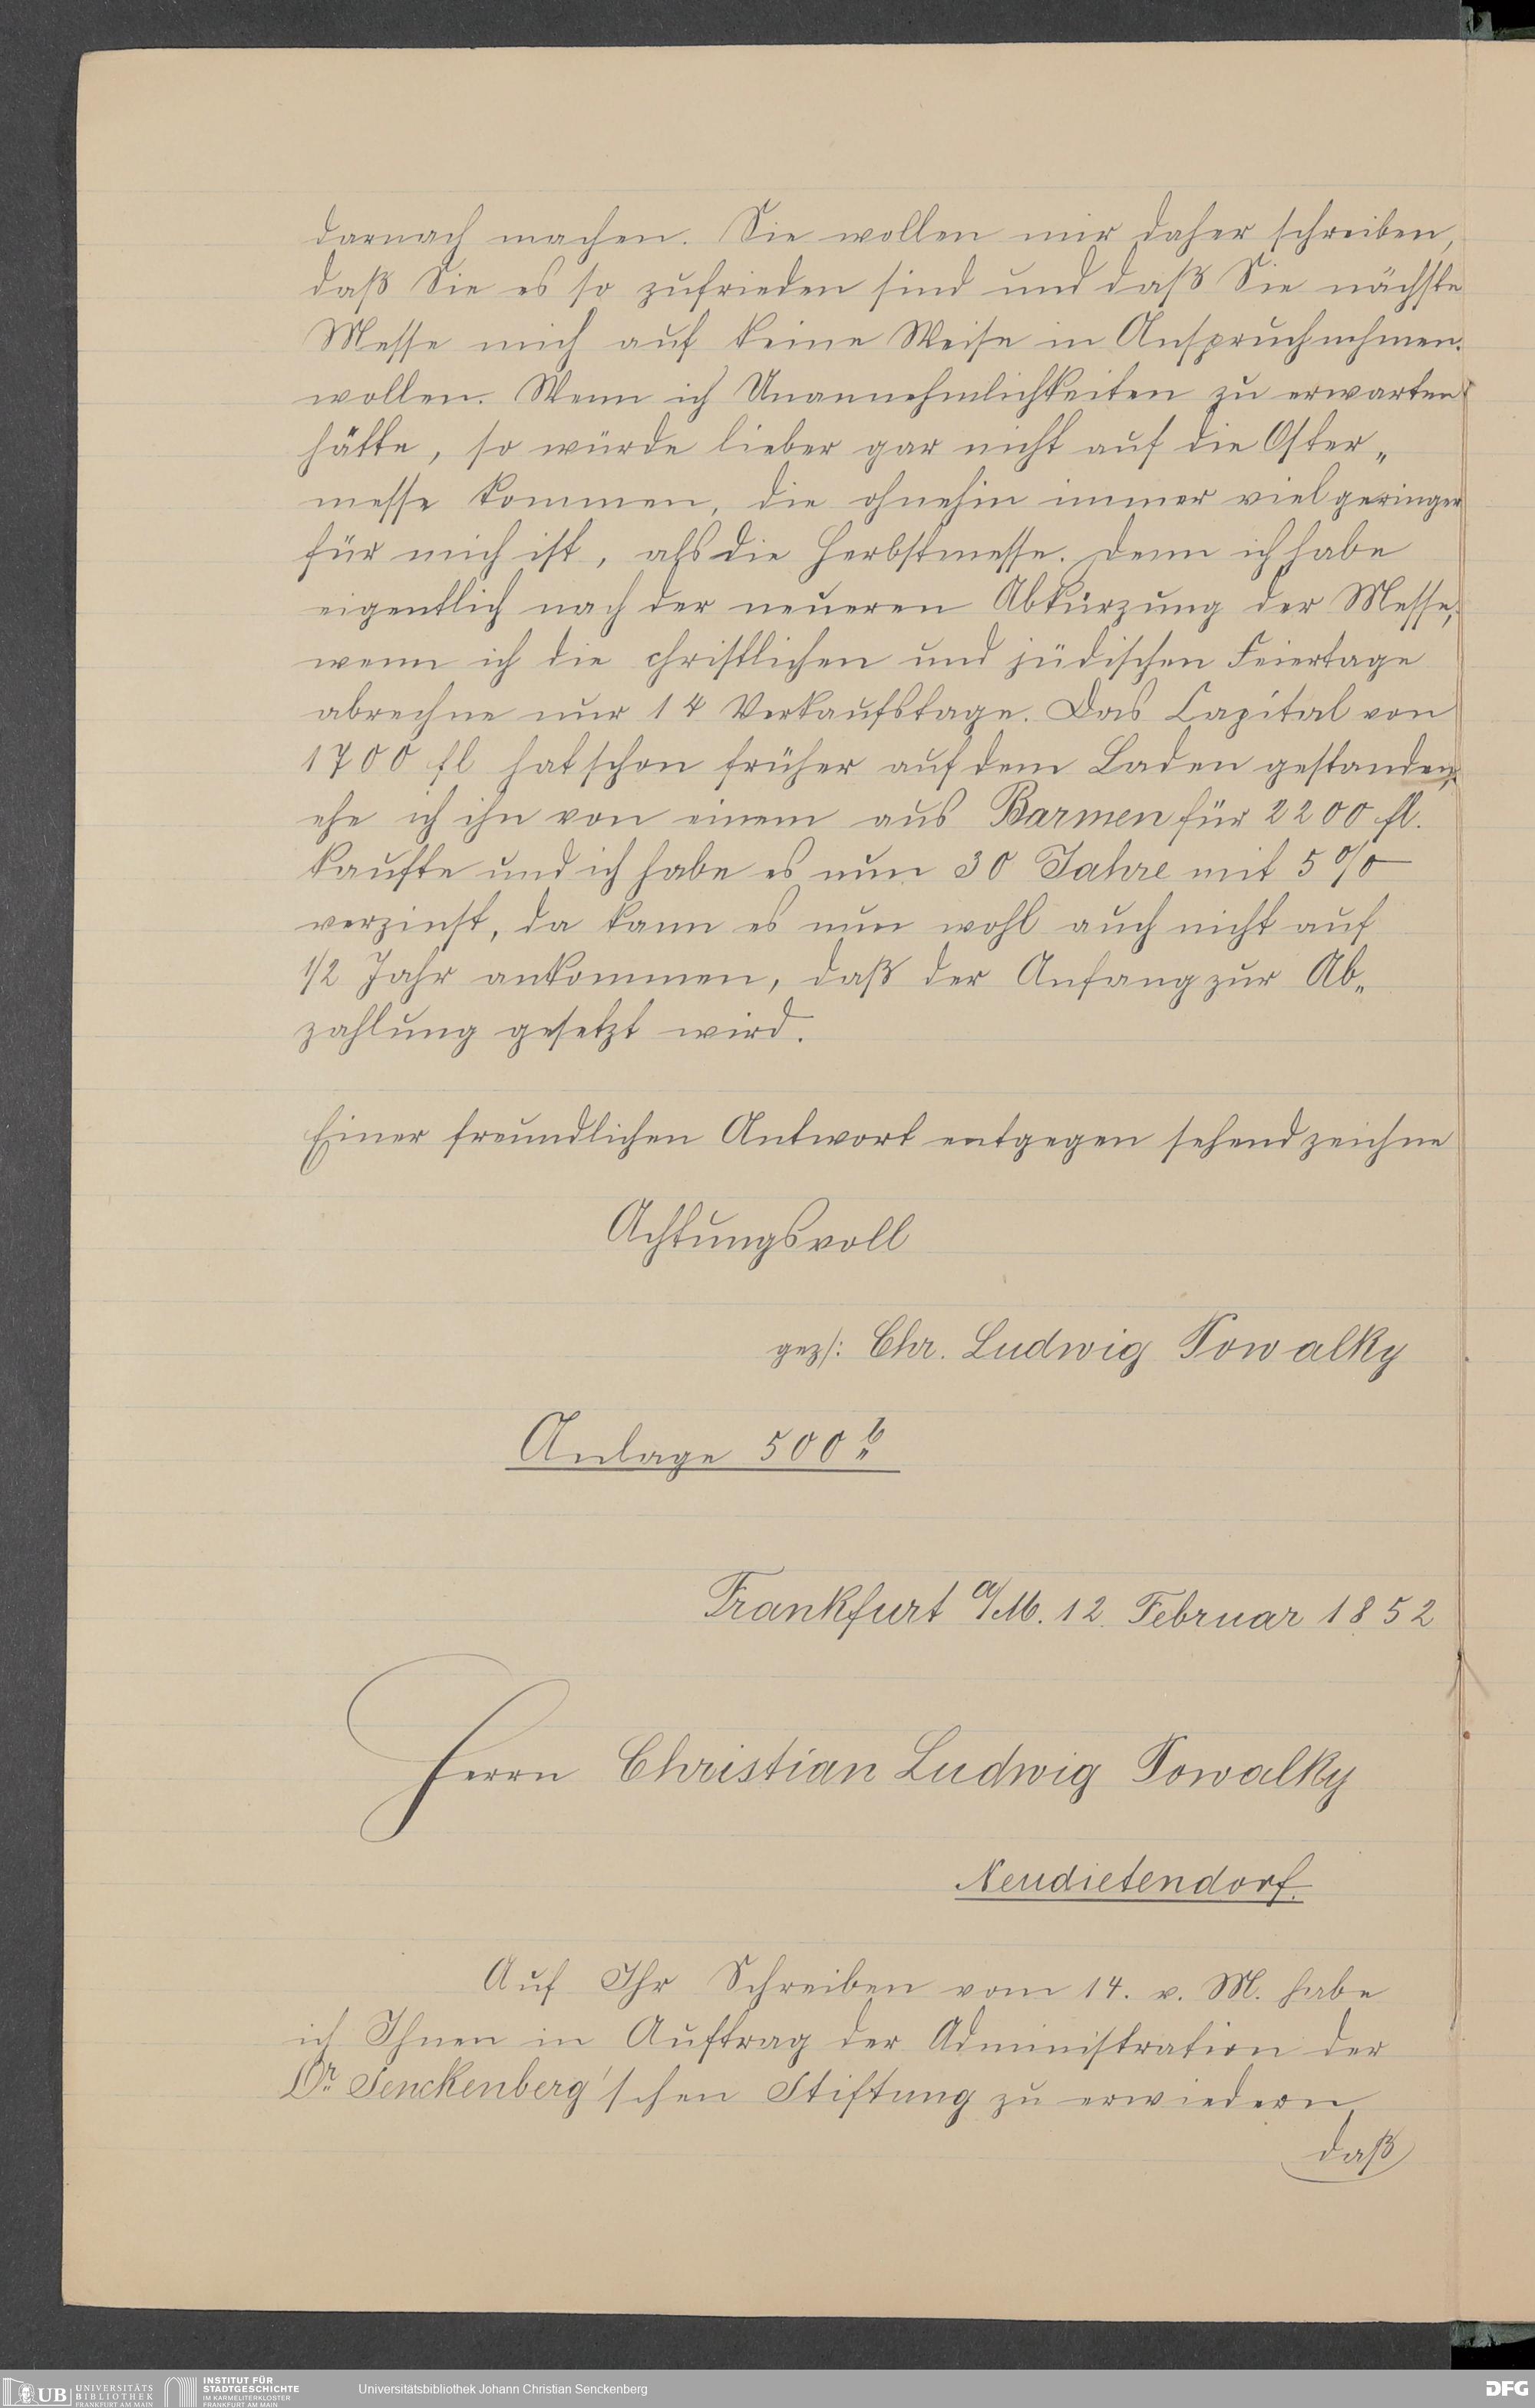 darnach machen. Sie wollen mir daher schreiben,
daß Sie es so zufrieden sind und daß Sie nächste
Messe mich auf keine Weise in Anspruch nehmen.
wollen. Wenn ich Unannehmlichkeiten zu erwarten
hätte, so würde lieber gar nicht auf die Oster„
messe kommen, die ohnehin immer viel geringer
für mich ist, als die Herbstmesse. Denn ich habe
eigentlich nach der neueren Abkürzung der Messe,
wenn ich die christlichen und jüdischen Feiertage
abrechne nur 14 Verkaufstage. Das Capital von
1700 fl hat schon früher auf dem Laden gestanden,
ehe ich ihn von einem aus Barmen für 2200 fl.
kaufte und ich habe es nun 30 Jahre mit 5%
verzinst, da kann es nun wohl auch nicht auf
1/2 Jahr ankommen, daß der Anfang zur Ab„
zahlung gesetzt wird.
Einer freundlichen Antwort entgegen sehend zeichne
Achtungsvoll
gez/: Chr. Ludwig Powalky
Anlage 500 b
Frankfurt a/M. 12. Februar 1852
Herrn Christian Ludwig Powalky
Neudietendorf.
Auf Ihr Schreiben vom 14. v. M. habe
ich Ihnen in Auftrag der Administration der
Dr. Senckenberg'schen Stiftung zu erwiedern,
daß
UB UNIVERSITÄTS
BIBLIOTHEK
FRANKFURT AM MAIN
INSTITUT FÜR
STADTGESCHICHTE
IM KARMELITERKLOSTER
FRANKFURT AM MAIN
Universitätsbibliothek Johann Christian Senckenberg
DFG